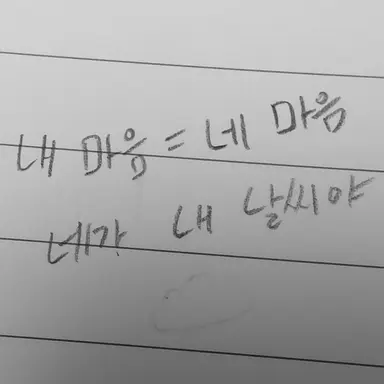 내 마음 = 네 마음
네가 내 날씨야